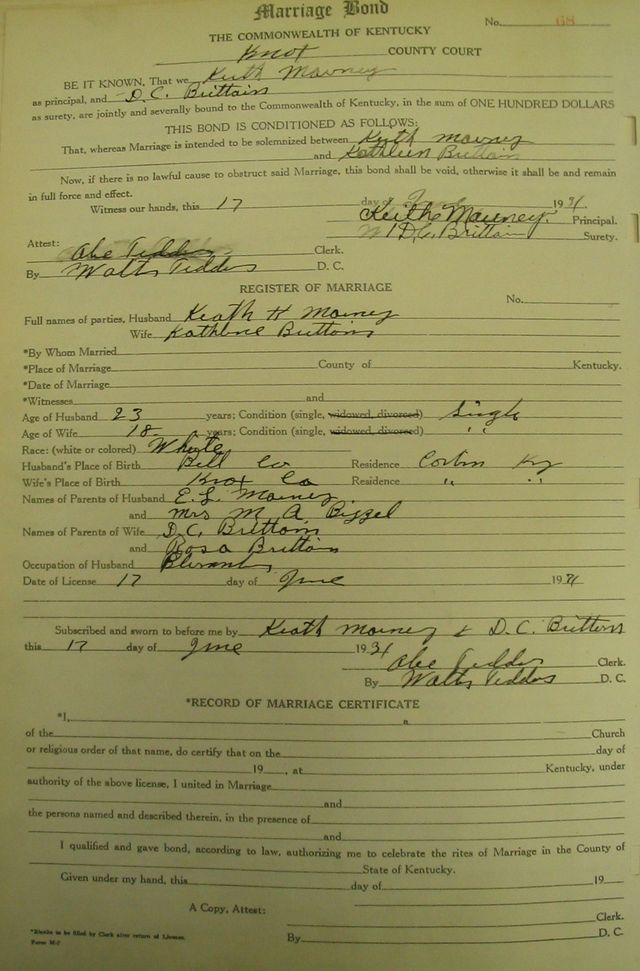 Marriage Bond
No. 68
THE COMMONWEALTH OF KENTUCKY
Knox COUNTY COURT
BE IT KNOWN, That we Keith Mauney
as principal, and D. C. Brittain
as surety, are jointly and severally bound to the Commonwealth of Kentucky, in the sum of ONE HUNDRED DOLLARS
THIS BOND IS CONDITIONED AS FOLLOWS:
That, whereas Marriage is intended to be solemnized between Keith Mauney
and Kathleen Brittain
Now, if there is no lawful cause to obstruct said Marriage, this bond shall be void, otherwise it shall be and remain
in full force and effect.
Witness our hands, this 17 day of 1931
Keith Mauney. Principal.
D. C. Brittain Surety.
Attest:
Abe Tedders Clerk.
By Walts Tedders D. C.
REGISTER OF MARRIAGE
No.
Full names of parties, Husband Keath H Mauney
Wife Kathlene Brittain
*By Whom Married
*Place of Marriage County of Kentucky.
*Date of Marriage
*Witnesses and
Age of Husband 23 years; Condition (single, widowed, divorced) Single
Age of Wife 18 years; Condition (single, widowed, divorced) " "
Race: (white or colored) Whyte
Husband's Place of Birth Bell Co Residence Corbin Ky
Wife's Place of Birth Knox Co Residence " "
Names of Parents of Husband E. L. Mauney.
and Mrs M. A. Bizzel
Names of Parents of Wife D. C. Brittain
and Rosa Brittain
Occupation of Husband
Date of License 17 day of June 1931
Subscribed and sworn to before me by Keath Mauney & D. C. Brittain
this 17 day of June 1931
Abe Tedders Clerk.
By Walts Tedders D. C.
*RECORD OF MARRIAGE CERTIFICATE
*I, a
of the Church
or religious order of that name, do certify that on the day of
19 , at Kentucky, under
authority of the above license, I united in Marriage
and
the persons named and described therein, in the presence of
and
I qualified and gave bond, according to law, authorizing me to celebrate the rites of Marriage in the County of
State of Kentucky.
Given under my hand, this day of 19
A Copy, Attest: Clerk.
By D. C.
*Blanks to be filled by Clerk after return of License.
Form M-7